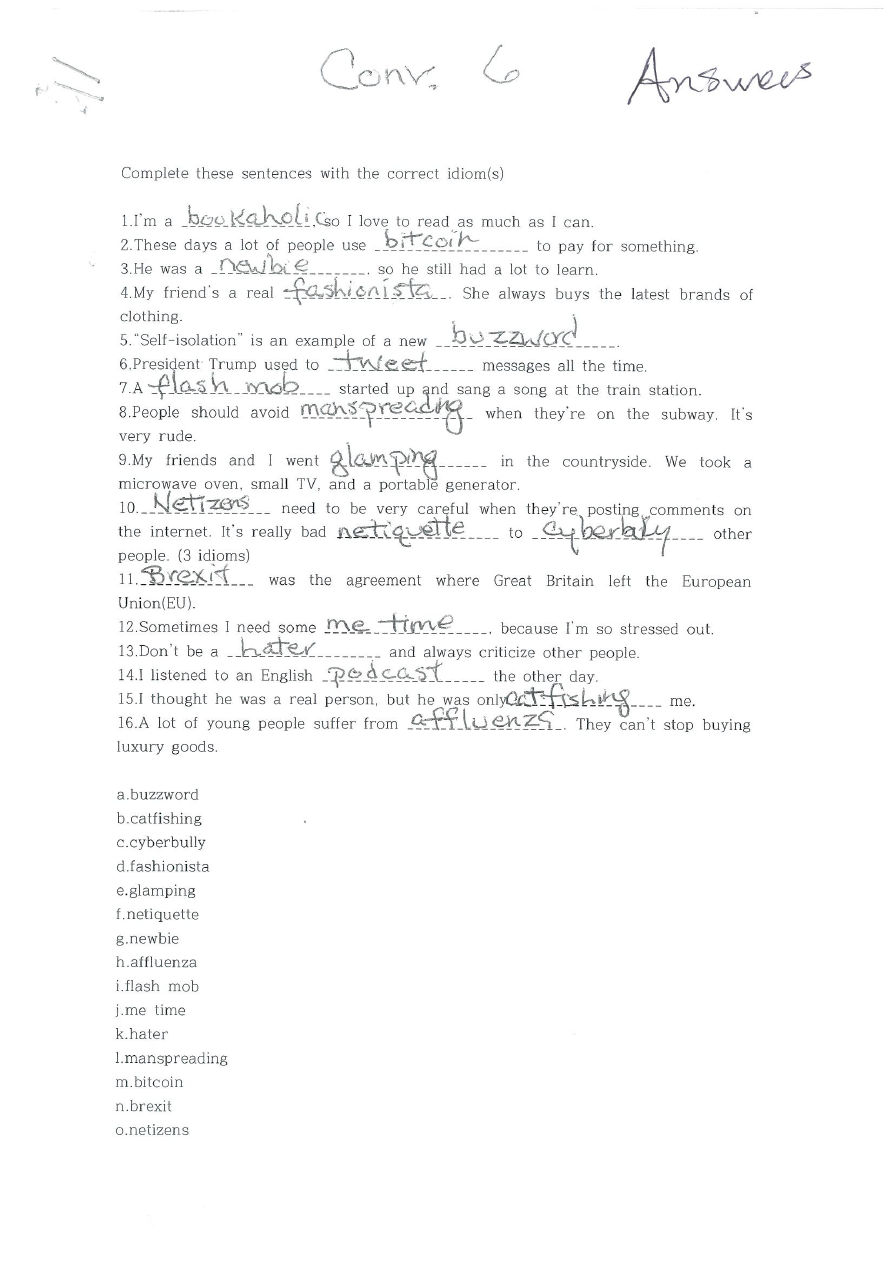 Conv. 6 Answers
Complete these sentences with the correct idiom(s)
1.I'm a bookaholic, so I love to read as much as I can.
2.These days a lot of people use bitcoin to pay for something.
3.He was a newbie, so he still had a lot to learn.
4.My friend's a real fashionista. She always buys the latest brands of
clothing.
5."Self-isolation" is an example of a new buzzword.
6.President Trump used to tweet messages all the time.
7.A flash mob started up and sang a song at the train station.
8.People should avoid manspreading when they're on the subway. It's
very rude.
9.My friends and I went glamping in the countryside. We took a
microwave oven, small TV, and a portable generator.
10.Netizens need to be very careful when they're posting comments on
the internet. It's really bad netiquette to other
people. (3 idioms)
11.Brexit was the agreement where Great Britain left the European
Union(EU).
12.Sometimes I need some me time, because I'm so stressed out.
13.Don't be a hater and always criticize other people.
14.I listened to an English podcast the other day.
15.I thought he was a real person, but he was only catfishing me.
16.A lot of young people suffer from affluenza. They can't stop buying
luxury goods.
a.buzzword
b.catfishing
c.cyberbully
d.fashionista
e.glamping
f.netiquette
g.newbie
h.affluenza
i.flash mob
j.me time
k.hater
l.manspreading
m.bitcoin
n.brexit
o.netizens